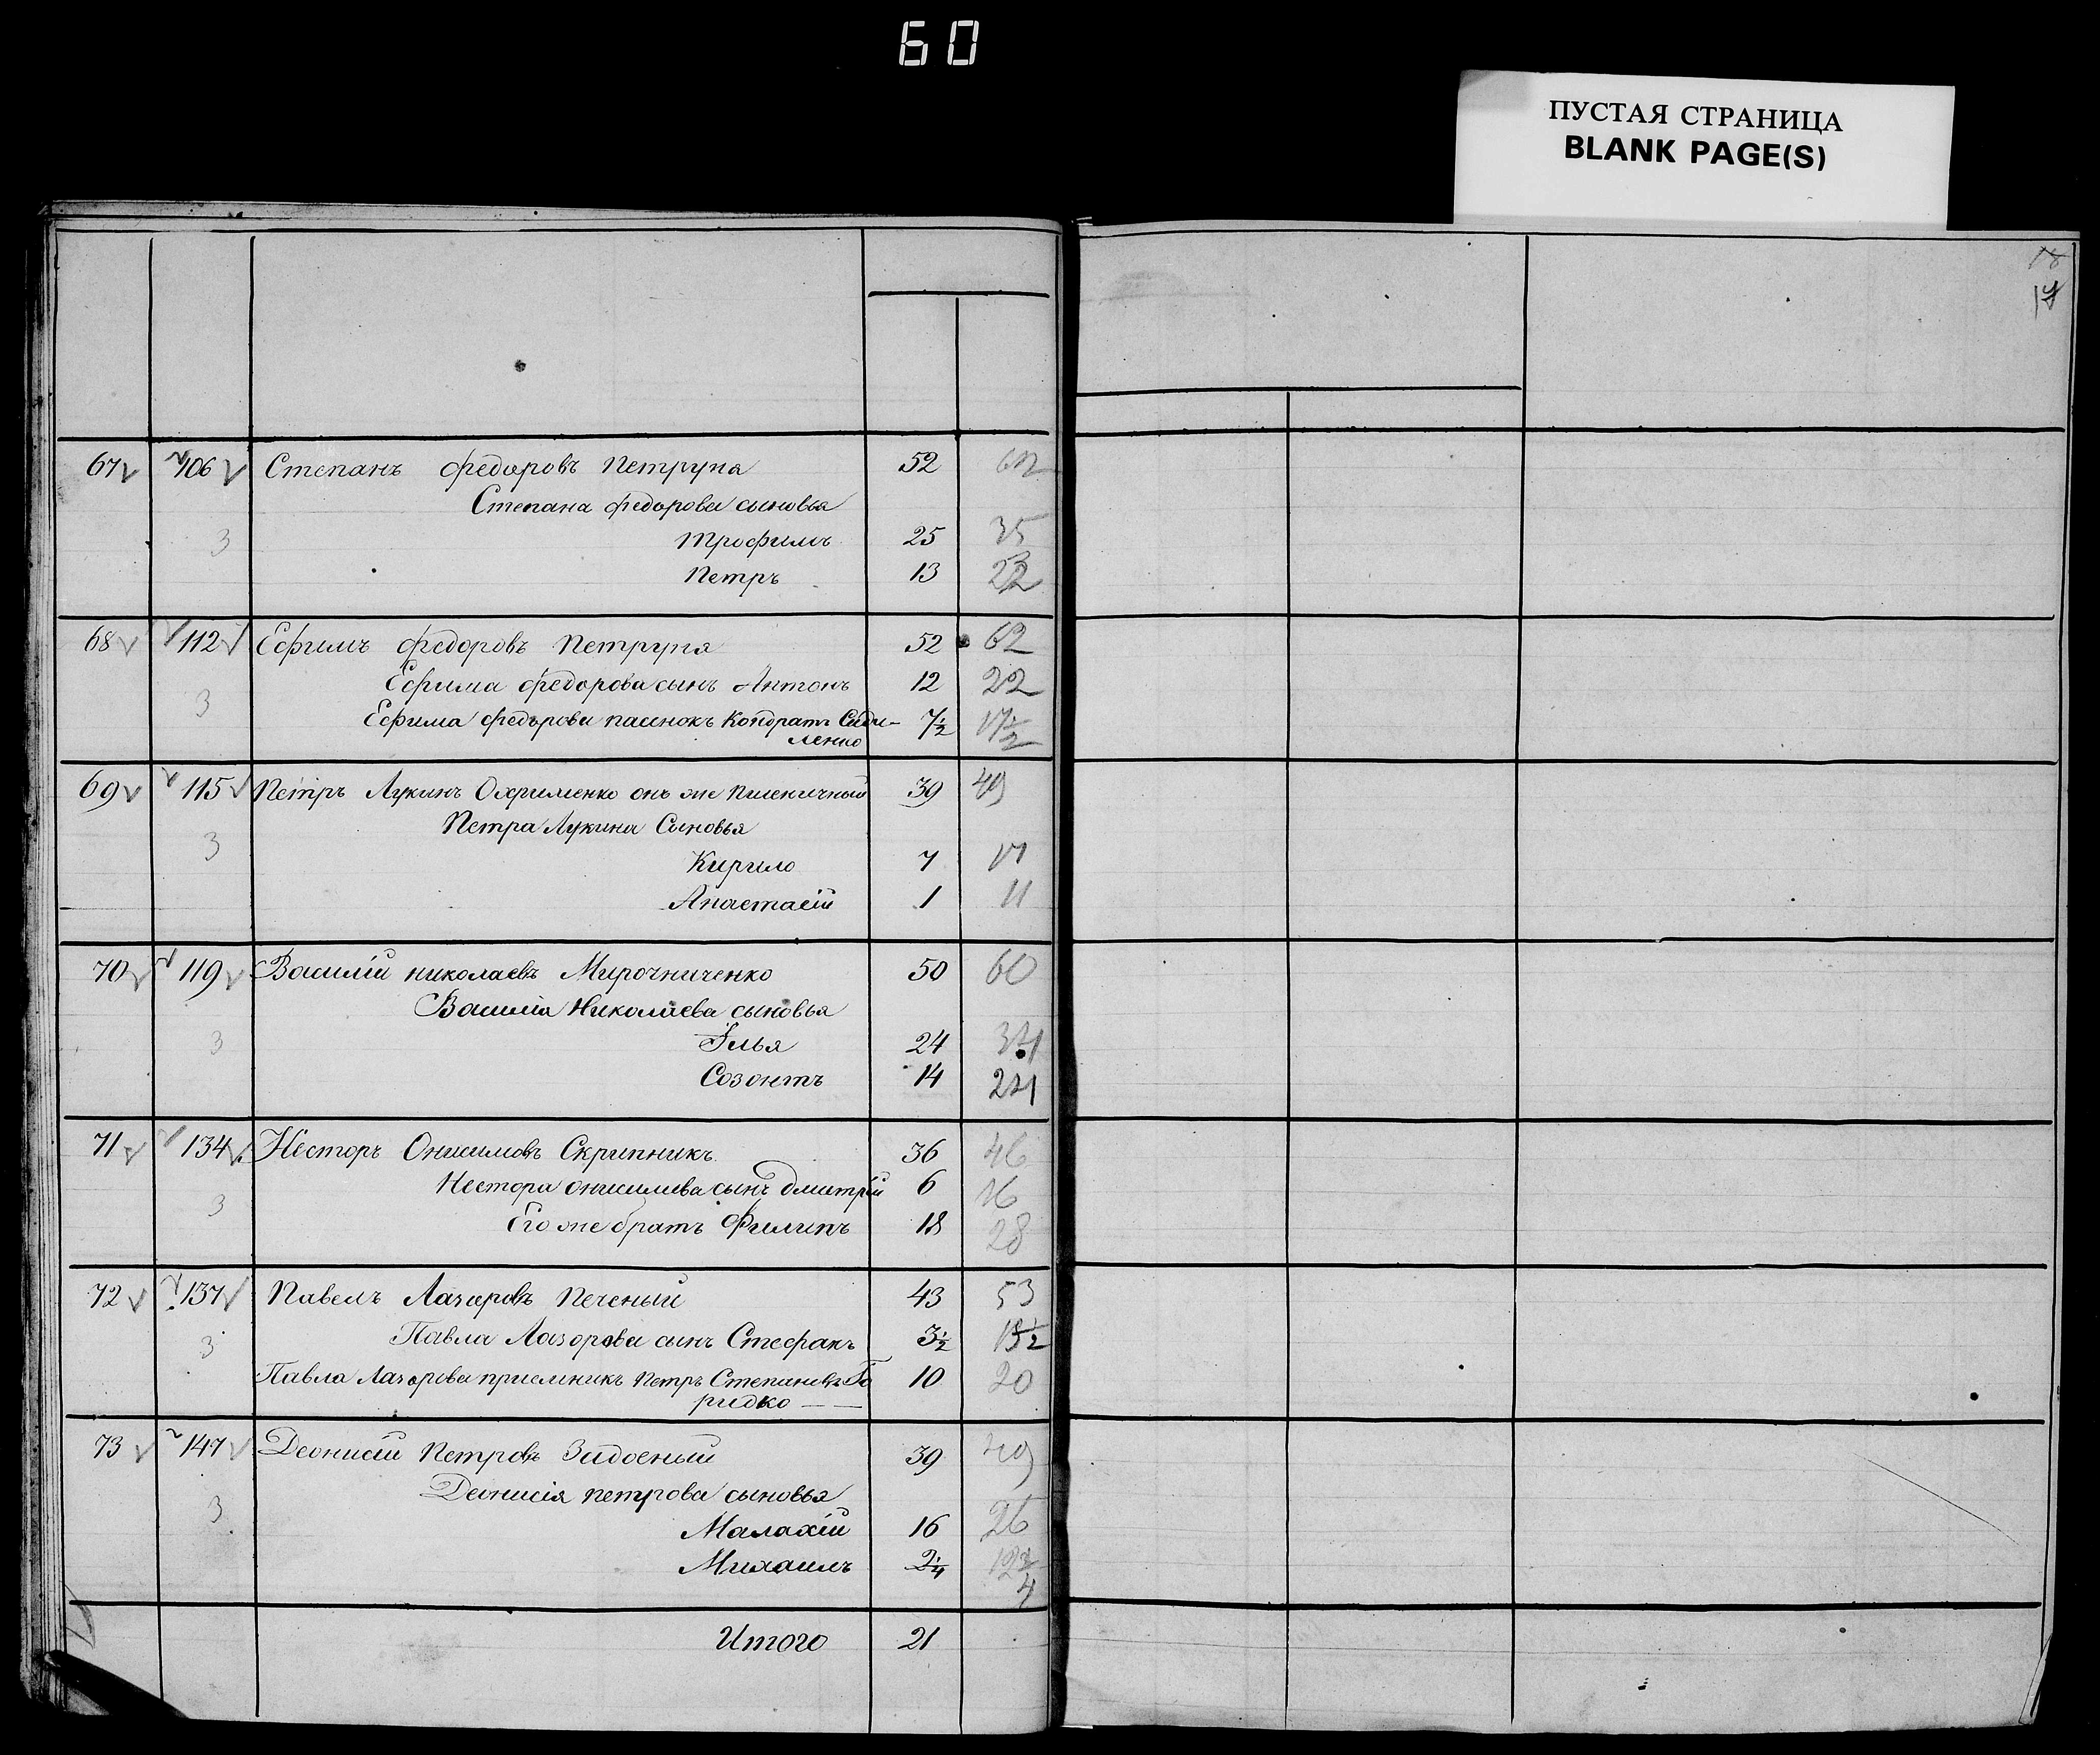 60
ПУСТАЯ СТРАНИЦА
BLANK PAGE(S)
67 106 Степанъ Федоровъ Петруня 52 62
Степана Федорова сыновья
3 Трофимъ 25 35
Петръ 13
68 112 Ефимъ Федоровъ Петруня 52 62
Ефима Федорова сынъ Антонъ 12 22
3 Ефима Федорова пасинокъ Кондратъ 7½ 17½
ленко
69 115 Петръ Лукинъ Охрименко онъ же Пшеничный 39 49
Петра Лукина Сыновья
3 Кирило 7 17
Анастасій 1 11
70 119 Василій Николаевъ Мирочниченко 50 60
Василія Николаева сыновья
3 Илья 24 34
Созонтъ 14 24
71 134 Несторъ Онисимовъ Скрипникъ 36 46
Нестора Онисимова сынъ Дмитрій 6 16
3 Его же братъ Филипъ 18 28
72 137 Павелъ Лазаровъ Печеный 43 53
3 Павла Лазорова сынъ Стефанъ 3½ 13½
Павла Лазорова приемникъ Петръ Степановъ Го 10 20
ридко
73 147 Деонисій Петровъ Задоеный 39 49
Деонисія Петрова сыновья
3 Малахій 16 26
Михаилъ 2¼
Итого 21